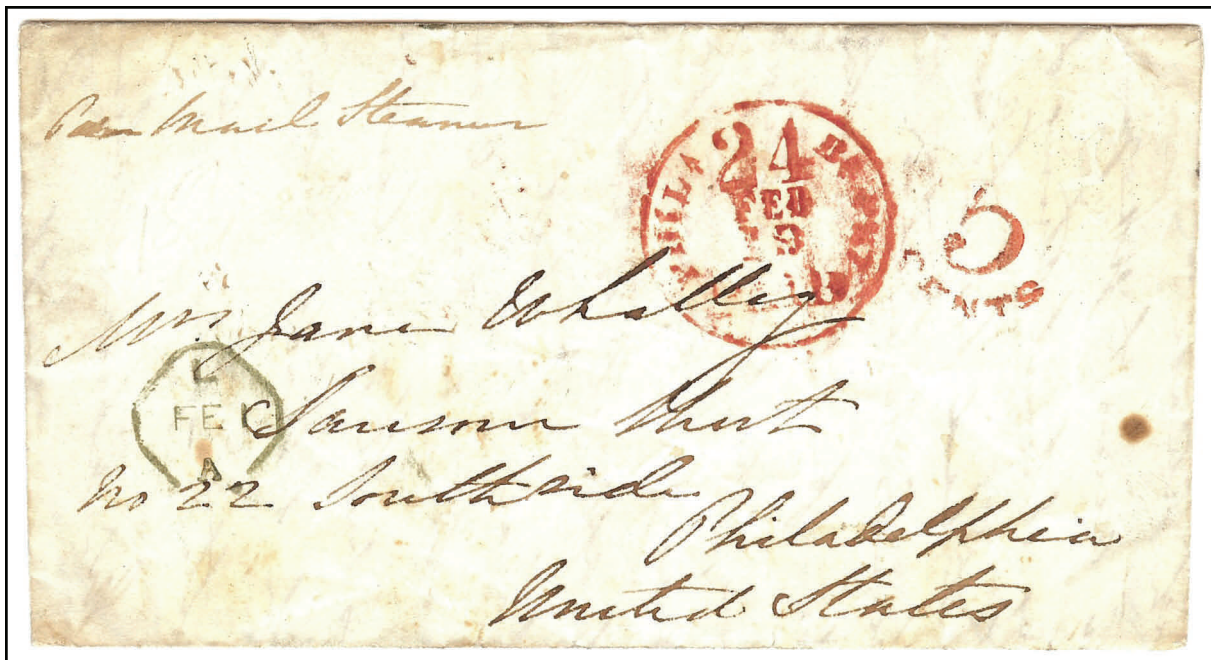 Mail Steamer
24
PHILA
FEB
5
CENTS
Mrs Jane Whalley
L
FE
A
Sansom Street
No 22 South side
Philadelphia
United States